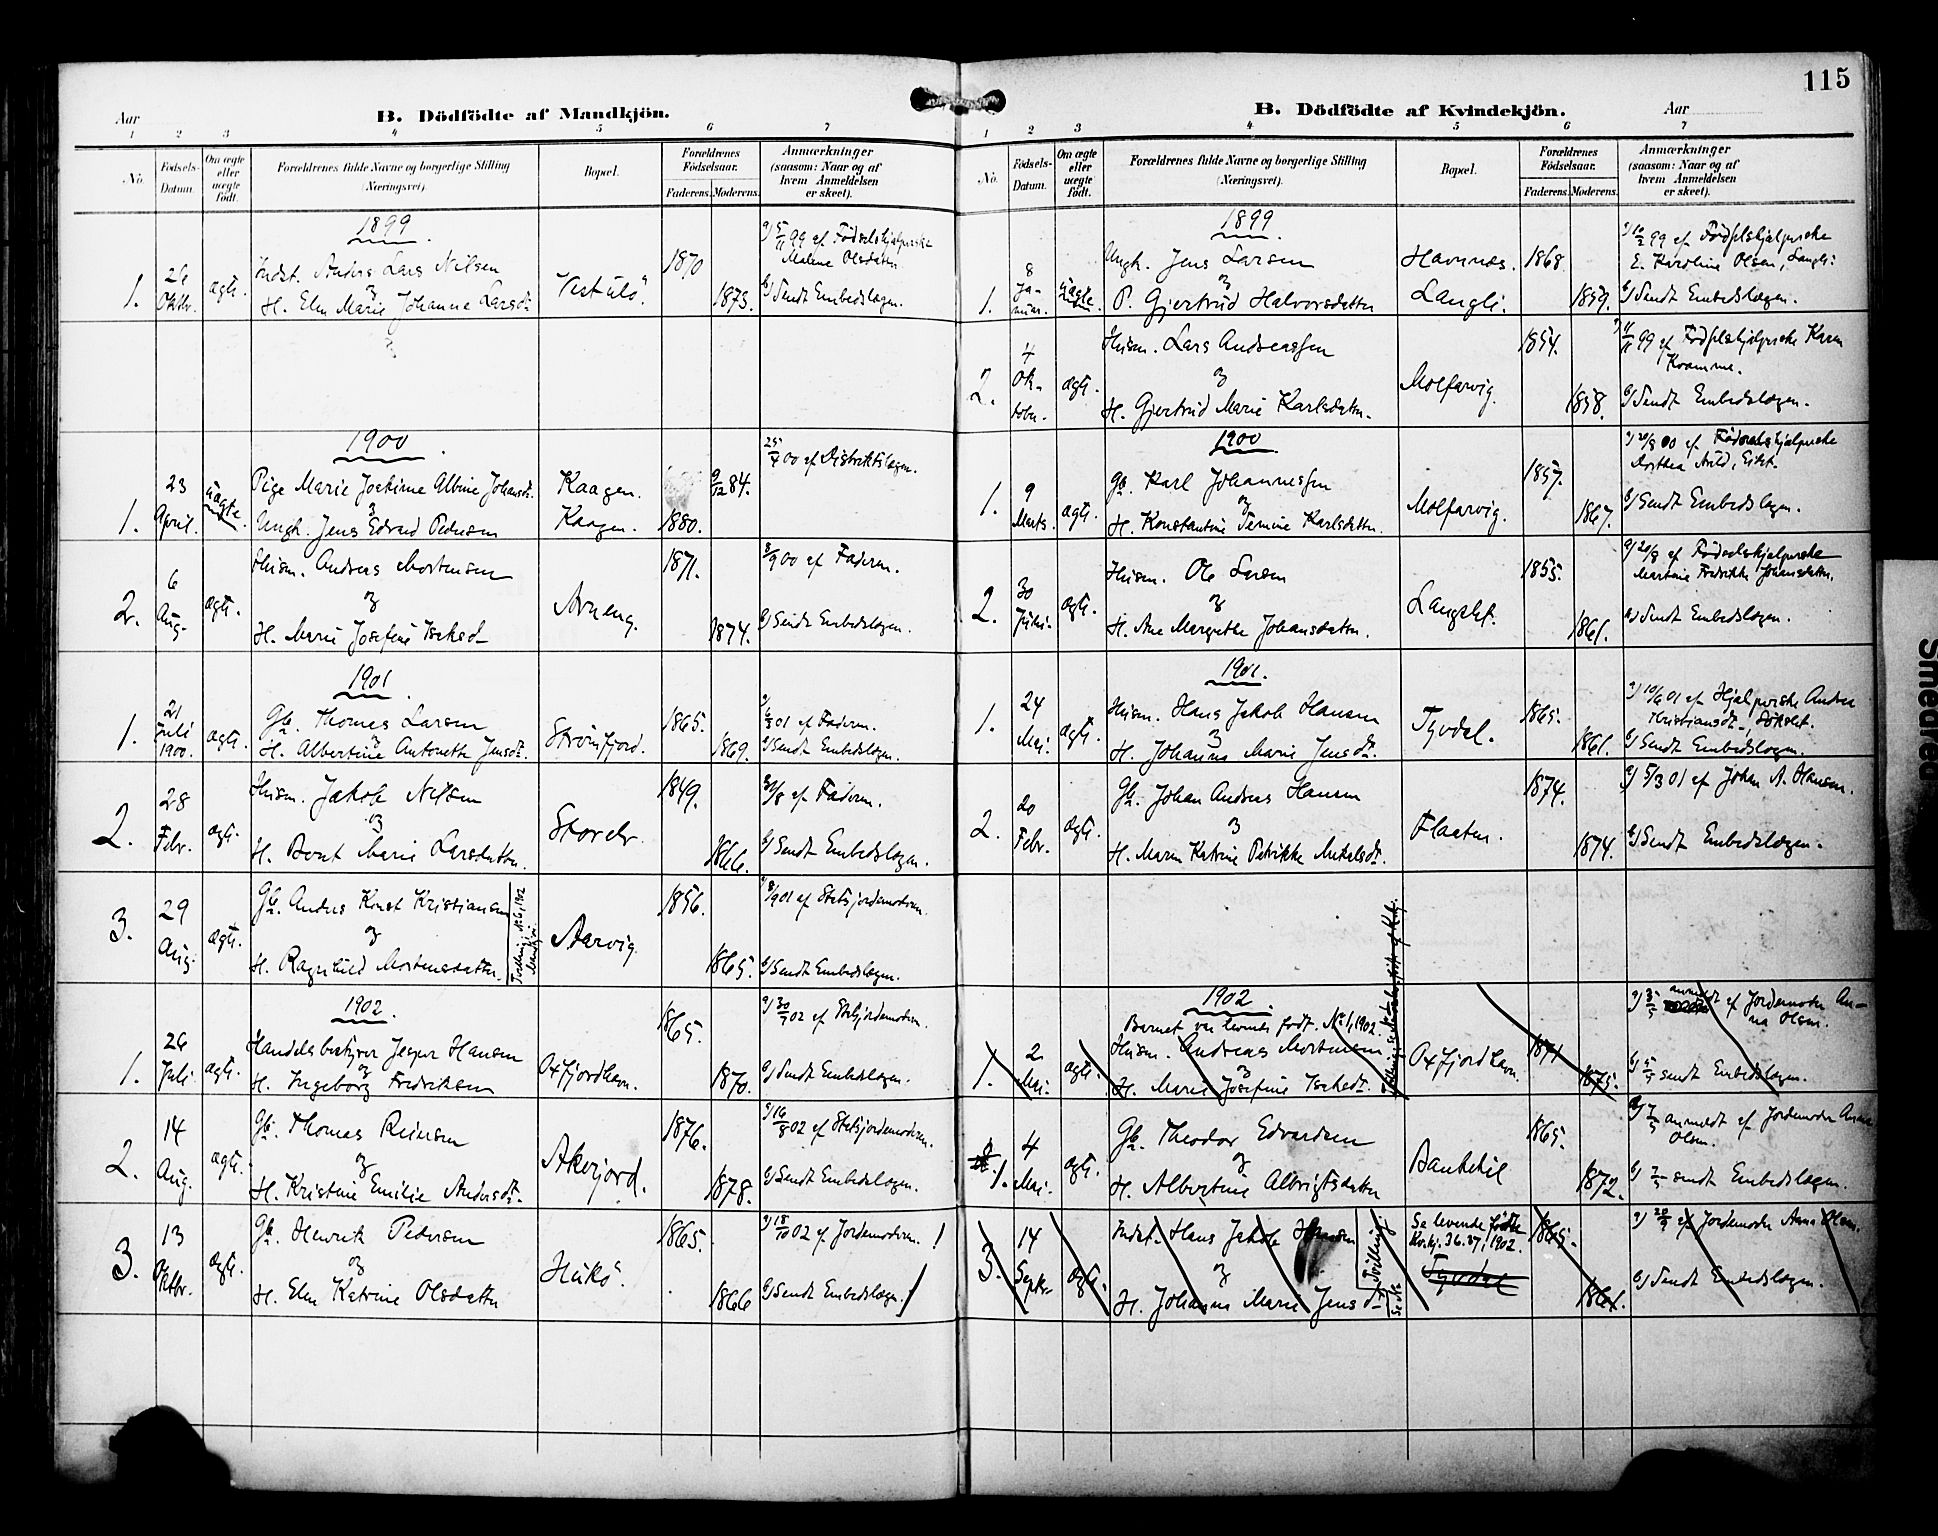 115
Aar
B. Dödfödte af Mandkjön.
1 2 3 4 5 6 7
No.
Födsels-
Datum.
Om ægte
eller
uægte
födt.
Forældrenes fulde Navne og borgerlige Stilling
(Næringsvei).
Bopæl.
Forældrenes
Födselsaar.
Faderens. Moderens.
Anmærkninger
(saasom: Naar og af
hvem Anmeldelsen
er skeet).
1899
1.
26
Oktbr.
ægte.
Indst. Anders Lars Nilsen
og
H. Elen Marie Johanne Larsdt.
1870
1873.
a) 5/11 99 af Födselshjælperske
Malene Olsdatter
b) Sendt Embedslægen.
1900
1.
23
April.
uægte.
Pige Marie Joakime Albine Johansdt.
&
Ungk. Jens Edvard Pedersen
Kaagen.
Kaagen.
9/12 84.
1880.
25/4 00 af Distriktslægen.
2.
6
Aug.
ægte.
Husm. Andreas Mortensen
og
H. Marie Josefine
1871.
1874.
8/9 00 af Faderen.
b) Sendt Embedslægen.
1901
1.
21
Juli
1900.
ægte.
Gb. Thomas Larsen
&
H. Albertine Antonette Jensdt.
Strömfjord.
1865.
1869.
a) 01 af Faderen.
b) Sendt Embedslægen.
2.
28
Febr.
ægte
Husm. Jakob Nilsen
&
H. Berit Marie Larsdatter.
1849.
1866.
af Faderen.
b) Sendt Embedslægen.
3.
29
Aug.
ægte.
Gb. Anders Konst Kristiansen
og
H. Ragnhild Mortensdatter.
Aarvig.
1856.
1865.
01 af Statsjordemoderen.
b) Sendt Embedslægen.
1902
1.
26
Juli
ægte.
Handelsbestyrer Jesper Hansen
og
H. Ingeborg Fredriksen
Oxfjordhavn.
1865.
1870.
a) 30/7 02 af Stsjordemoderen.
b) Sendt Embedslægen.
2.
14
Aug.
ægte.
Gb. Thomas Reiersen
og
H. Kristine Emilie Andersdt.
Akerjord.
1876.
1878.
a) 16/8 02 af Statsjordemoderen.
b) Sendt Embedslægen.
3.
13
Oktbr.
ægte.
Gb. Henrik Pedersen
og
H. Elen Katrine Olsdatter
Hukö.
1865.
1866
a) 18/10 02 af Jordemoderen.
b) Sendt Embedslægen.
B. Dödfödte af Kvindekjön.
Aar
1 2 3 4 5 6 7
No.
Födsels-
Datum.
Om ægte
eller
uægte
födt.
Forældrenes fulde Navne og borgerlige Stilling
(Næringsvei).
Bopæl.
Forældrenes
Födselsaar.
Faderens. Moderens.
Anmærkninger
(saasom: Naar og af
hvem Anmeldelsen
er skeet).
1899
1.
8
Ja-
nuar.
uægte
Ungk. Jens Larsen
&
P. Gjertrud Halvorsdatter
Havnnes.
Langli.
1868
1859.
99 af Födselshjælperske
E. Karoline Olsen, Langli.
b) Sendt Embedslægen.
2.
4
Ok-
tober.
ægte.
Husm. Lars Andreassen
og
H. Gjertrud Marie Karlsdatter.
Molfarvig.
1854.
1858.
99 af Födselshjælperske Karen
b) Sendt Embedslægen.
1900
1.
9
Marts.
ægte.
Gb. Karl Johannessen
og
H. Konstantine Jemine Karlsdatter.
Molfarvig.
1857.
1867.
00 af Födselshjælperske
b) Sendt Embedslægen.
2.
30
Juni.
ægte.
Husm. Ole Larsen
og
H. Ane Margrethe Johansdatter.
Langslet.
1855.
1861.
a) 20/8 af Födselshjælperske
Martine Fredrikke Johansdatter.
b) Sendt Embedslægen.
1901.
1.
24
Mai.
ægte.
Husm. Hans Jakob Hansen
&
H. Johanna Marie Jensdt.
Tyvdal.
1865.
1861.
a) 10/6 01 af Hjælperske Andrea
Kristiansdt.
b) Sendt Embedslægen.
2.
20
Febr.
ægte.
Gb. Johan Andreas Hansen
&
H. Maren Katrine Petrikke Mikalsdt.
Flaaten.
1874.
1874.
a) 5/3 01 af Johan A. Hansen.
b) Sendt Embedslægen.
1902
Barnet var levende födt. No 1, 1902.
1.
2
Mai.
ægte.
Husm. Andreas Mortensen
&
H. Marie Josefine
Oxfjordhavn.
1871
1875.
anmeldt af Jordemoder An-
na Olsen.
b) 5/5 sendt Embedslægen.
1.
4
Mai.
ægte.
Gb. Theodor Edvardsen
og
H. Albertine Albrigtsdatter
1865.
1872.
a) 7/5 anmeldt af Jordemoder Anna
Olsen.
b) 7/5 sendt Embedslægen.
3.
14
Septr.
ægte.
Indst. Hans Jakob Hansen
og
H. Johanna Marie Jensdt.
Tvilling.
Se levende födte
Kv.kj. 36.37, 1902.
Tyvdal
1865.
1861.
a) af Jordemoder Anna Olsen.
b) Sendt Embedslægen.
Smeared